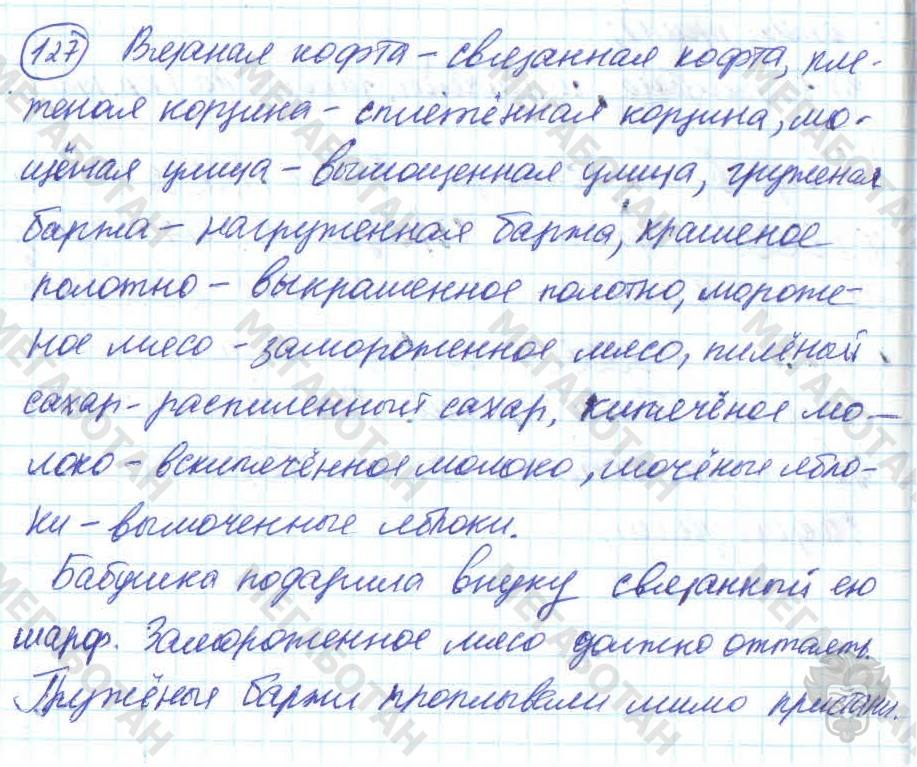 127 Вязаная кофта – связанная кофта, пле-
теная корзина – сплетённая корзина, мо-
щёная улица – вымощенная улица, груженая
баржа – нагруженная баржа, крашеное
полотно – выкрашенное полотно, мороже-
ное мясо – замороженное мясо, пилёный
сахар – распиленный сахар, кипячёное мо-
локо – вскипячённое молоко, мочёные ябло-
ки – вымоченные яблоки.
Бабушка подарила внуку связанный ею
шарф. Замороженное мясо должно оттаять.
Гружёные баржи проплывали мимо пристани.
МЕГАБОТАН